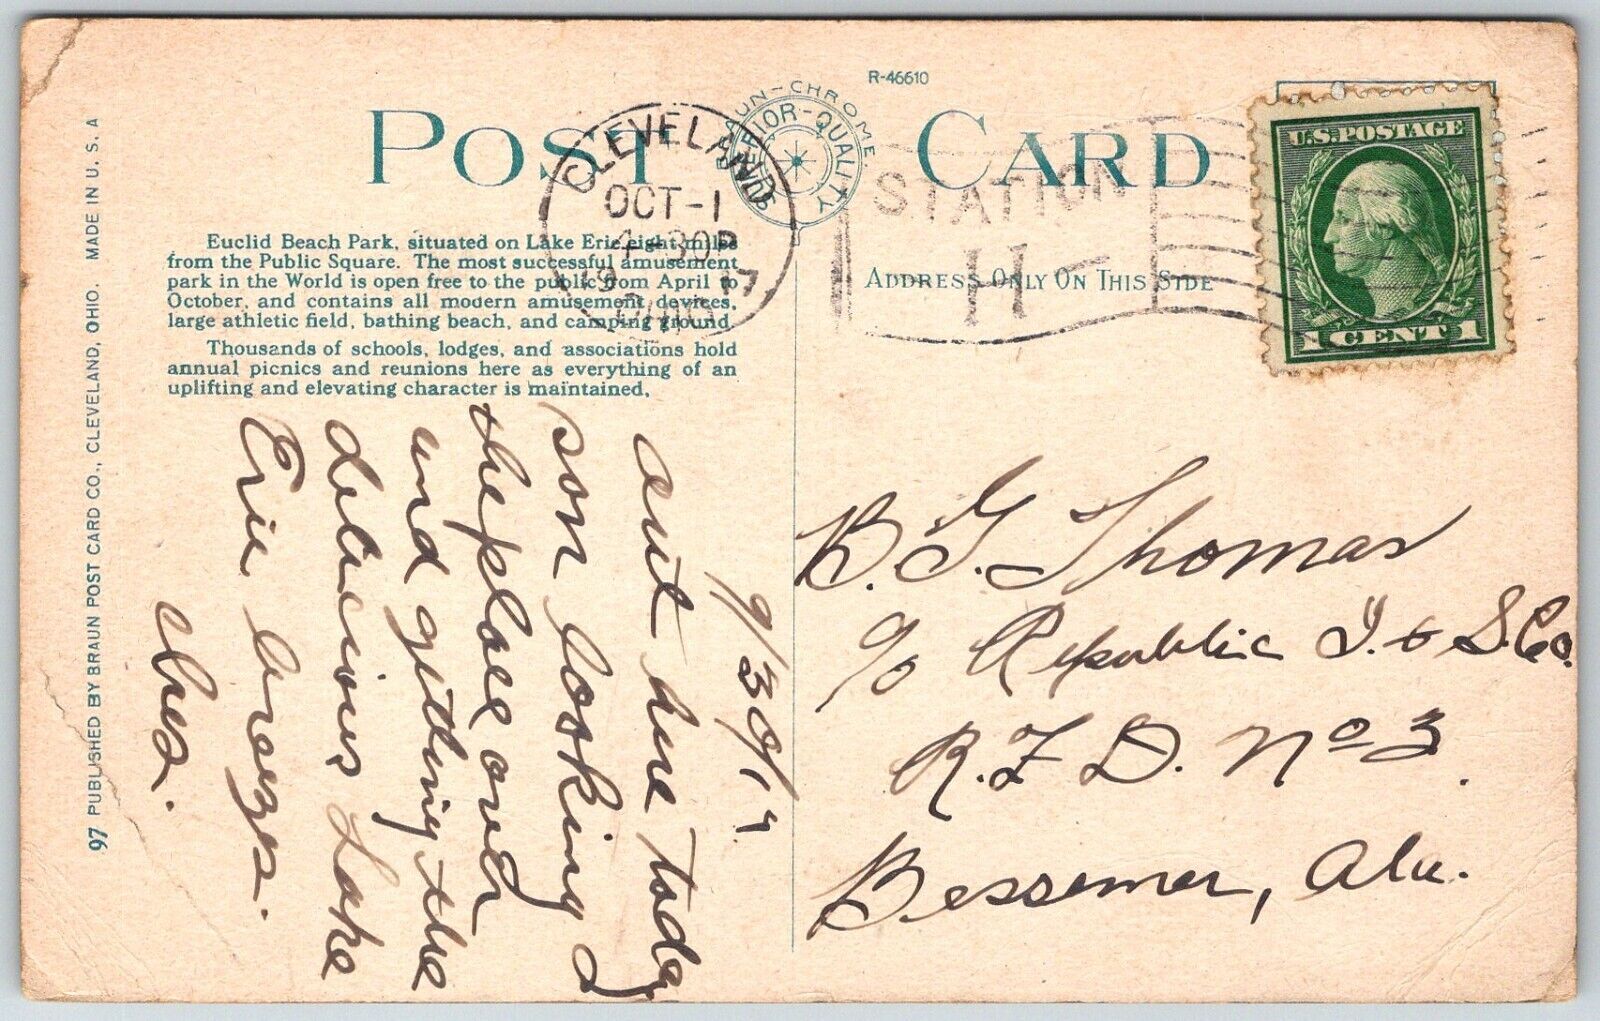 R-46610
POST CARD
BRAUN-CHROME
SUPERIOR-QUALITY
CLEVELAND
OCT-1
4-30P
1917
OHIO
STATION
H
U.S. POSTAGE
1 CENT 1
Euclid Beach Park, situated on Lake Erie eight miles
from the Public Square. The most successful amusement
park in the World is open free to the public from April to
October, and contains all modern amusement devices,
large athletic field, bathing beach, and camping ground.
Thousands of schools, lodges, and associations hold
annual picnics and reunions here as everything of an
uplifting and elevating character is maintained.
ADDRESS ONLY ON THIS SIDE
97 PUBLISHED BY BRAUN POST CARD CO., CLEVELAND, OHIO. MADE IN U. S. A
9/30/17
out here today
son looking
the place over
and getting the
delicious Lake
Erie breezes.
Ches.
B. G. Thomas
c/o Republic I. & S. Co.
R. F. D. No 3.
Bessemer, Ala.